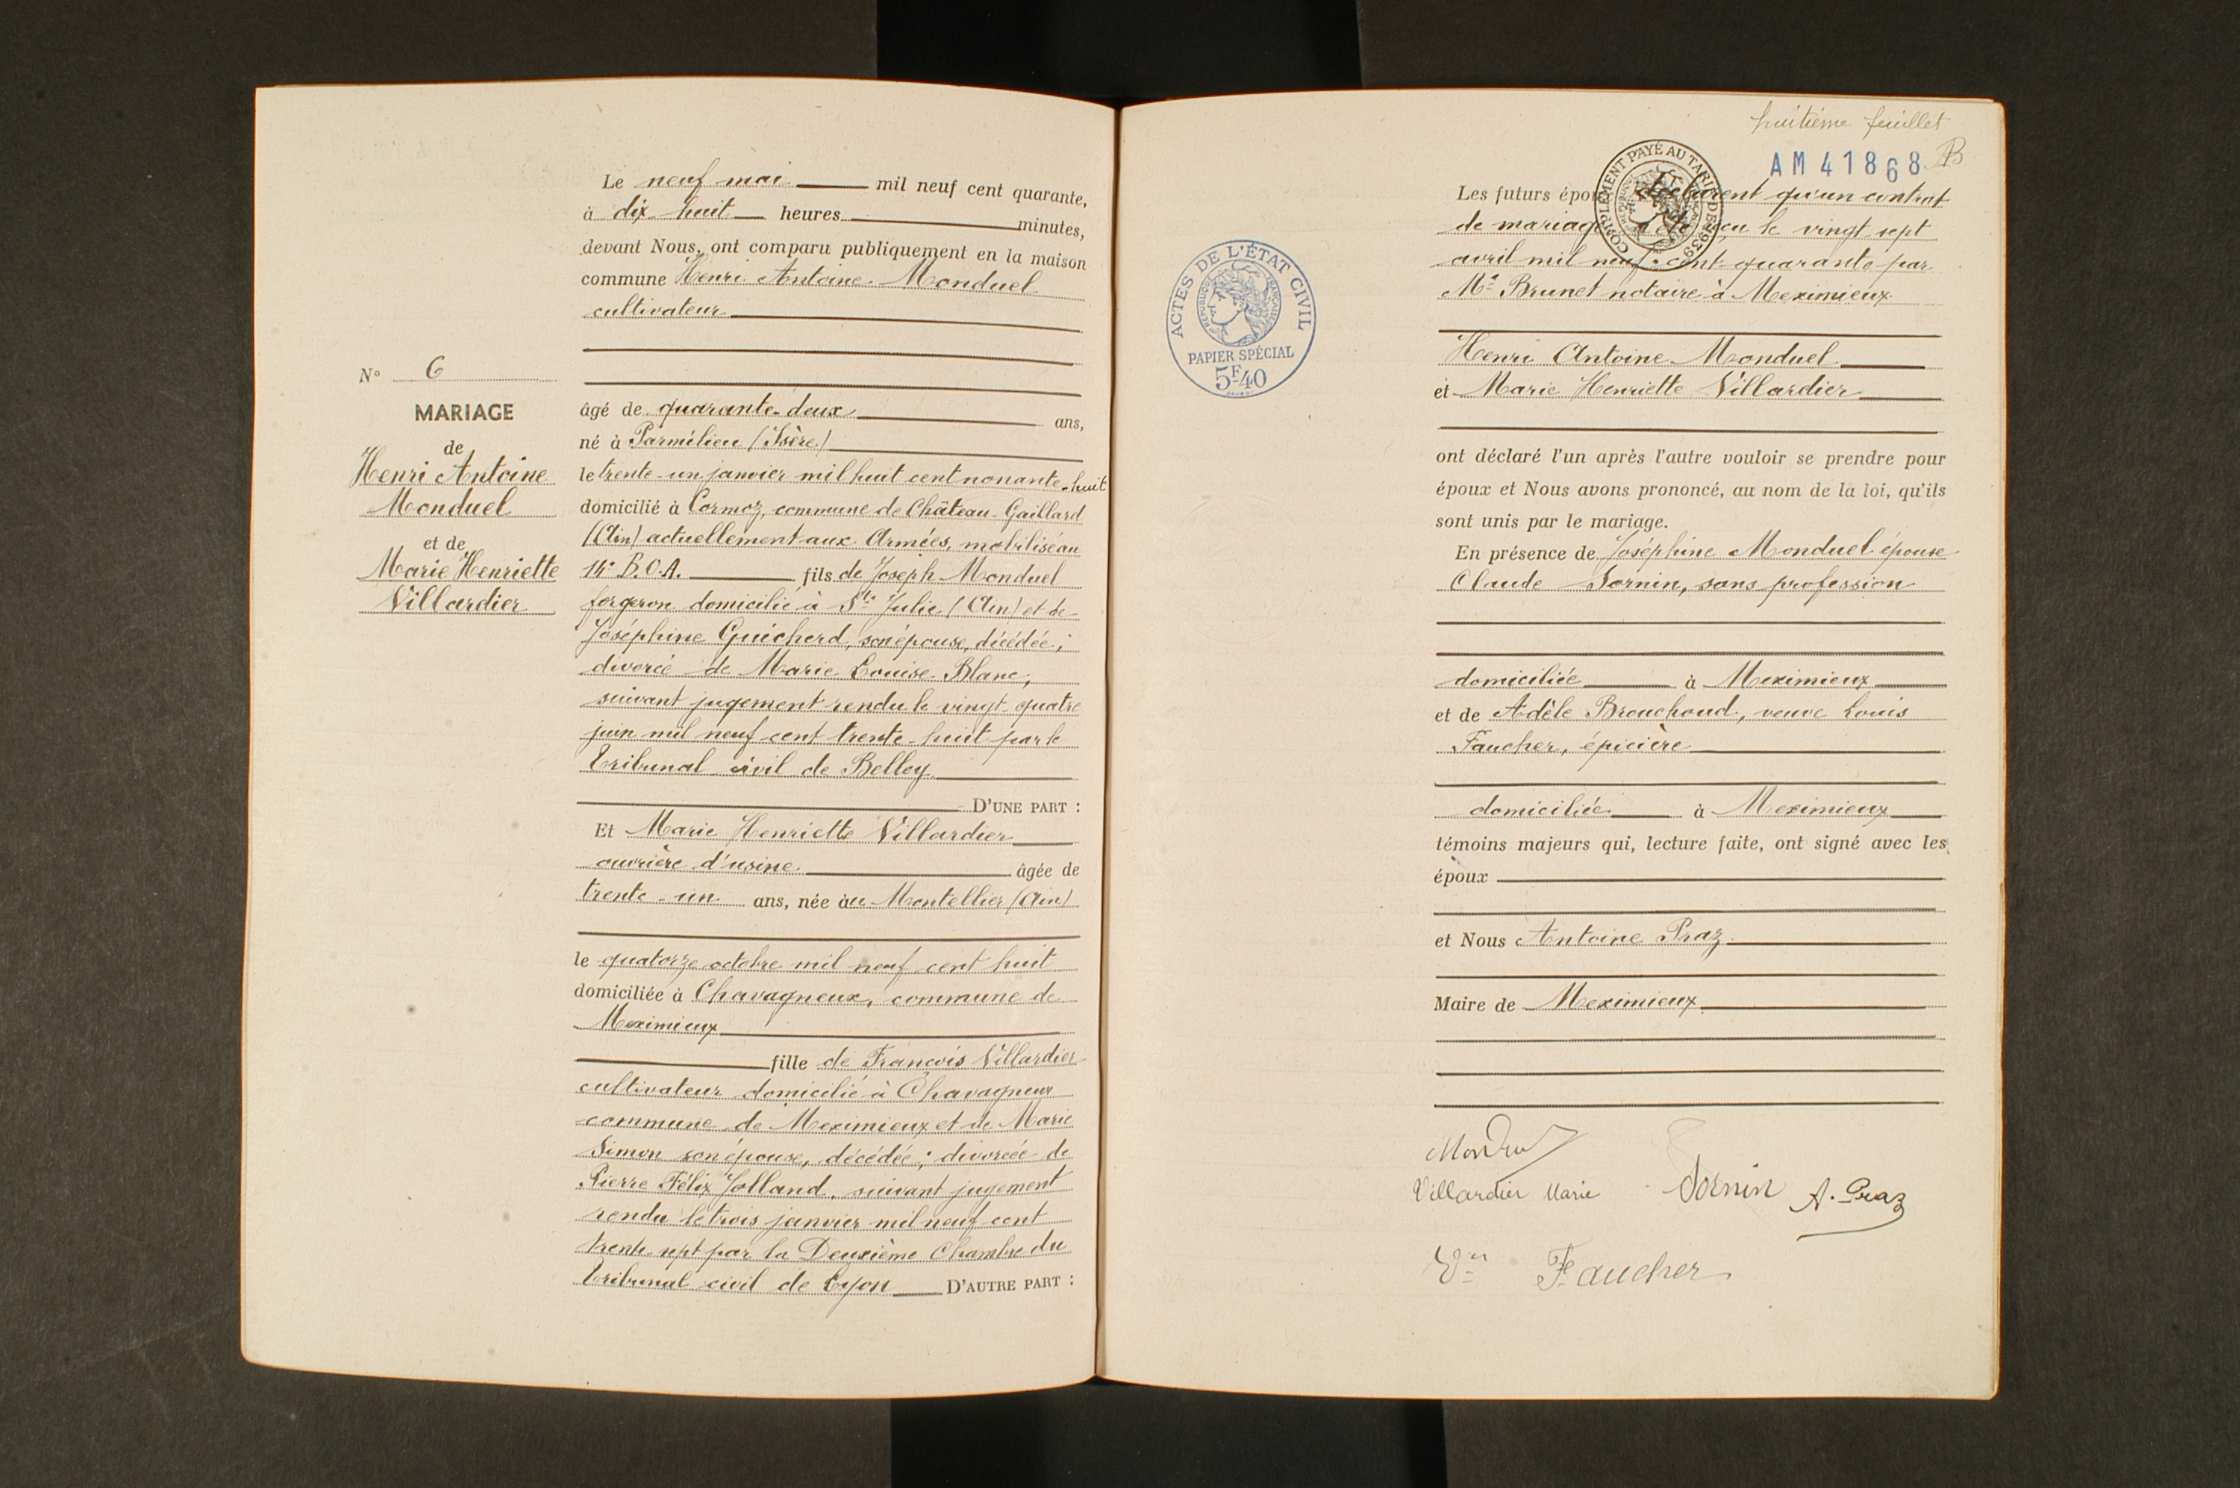 N° 6
MARIAGE
de
Henri Antoine
Monduel
et de
Marie Henriette
Villardier
Le neuf mai mil neuf cent quarante,
à dix huit heures minutes,
devant Nous, ont comparu publiquement en la maison
commune Henri Antoine Monduel
cultivateur
âgé de quarante-deux ans,
né à Parmilieu (Isère)
le trente-un janvier mil huit cent nonante-huit
domicilié à Cormoz, commune de Château-Gaillard
(Ain) actuellement aux Armées, mobilisé au
14e B.O.A. fils de Joseph Monduel
forgeron domicilié à Ste Julie (Ain) et de
Joséphine Guicherd, son épouse, décédée;
divorcé de Marie Louise Blanc,
suivant jugement rendu le vingt-quatre
juin mil neuf cent trente-huit par le
Tribunal civil de Belley
D'UNE PART :
Et Marie Henriette Villardier
ouvrière d'usine âgée de
trente-un ans, née au Montellier (Ain)
le quatorze octobre mil neuf cent huit
domiciliée à Chavagneux, commune de
Meximieux
fille de François Villardier
cultivateur domicilié à Chavagneux
commune de Meximieux et de Marie
Simon son épouse, décédée; divorcée de
Pierre Félix Jolland, suivant jugement
rendu le trois janvier mil neuf cent
trente-sept par la Deuxième Chambre du
Tribunal civil de Lyon D'AUTRE PART :
huitième feuillet
AM 41868 B
COMPLÉMENT PAYÉ AU TARIF DE 1939
ACTES DE L'ÉTAT CIVIL
RÉPUBLIQUE FRANÇAISE
PAPIER SPÉCIAL
5F40
Les futurs époux déclarent qu'un contrat
de mariage a été reçu le vingt sept
avril mil neuf-cent quarante par
Me Brunet notaire à Meximieux
Henri Antoine Monduel
et Marie Henriette Villardier
ont déclaré l'un après l'autre vouloir se prendre pour
époux et Nous avons prononcé, au nom de la loi, qu'ils
sont unis par le mariage.
En présence de Joséphine Monduel épouse
Claude Sornin, sans profession
domiciliée à Meximieux
et de Adèle Brouchoud, veuve Louis
Faucher, épicière
domiciliée à Meximieux
témoins majeurs qui, lecture faite, ont signé avec les
époux
et Nous Antoine Praz
Maire de Meximieux
Monduel
Villardier Marie Sornin A. Praz
Vve Faucher